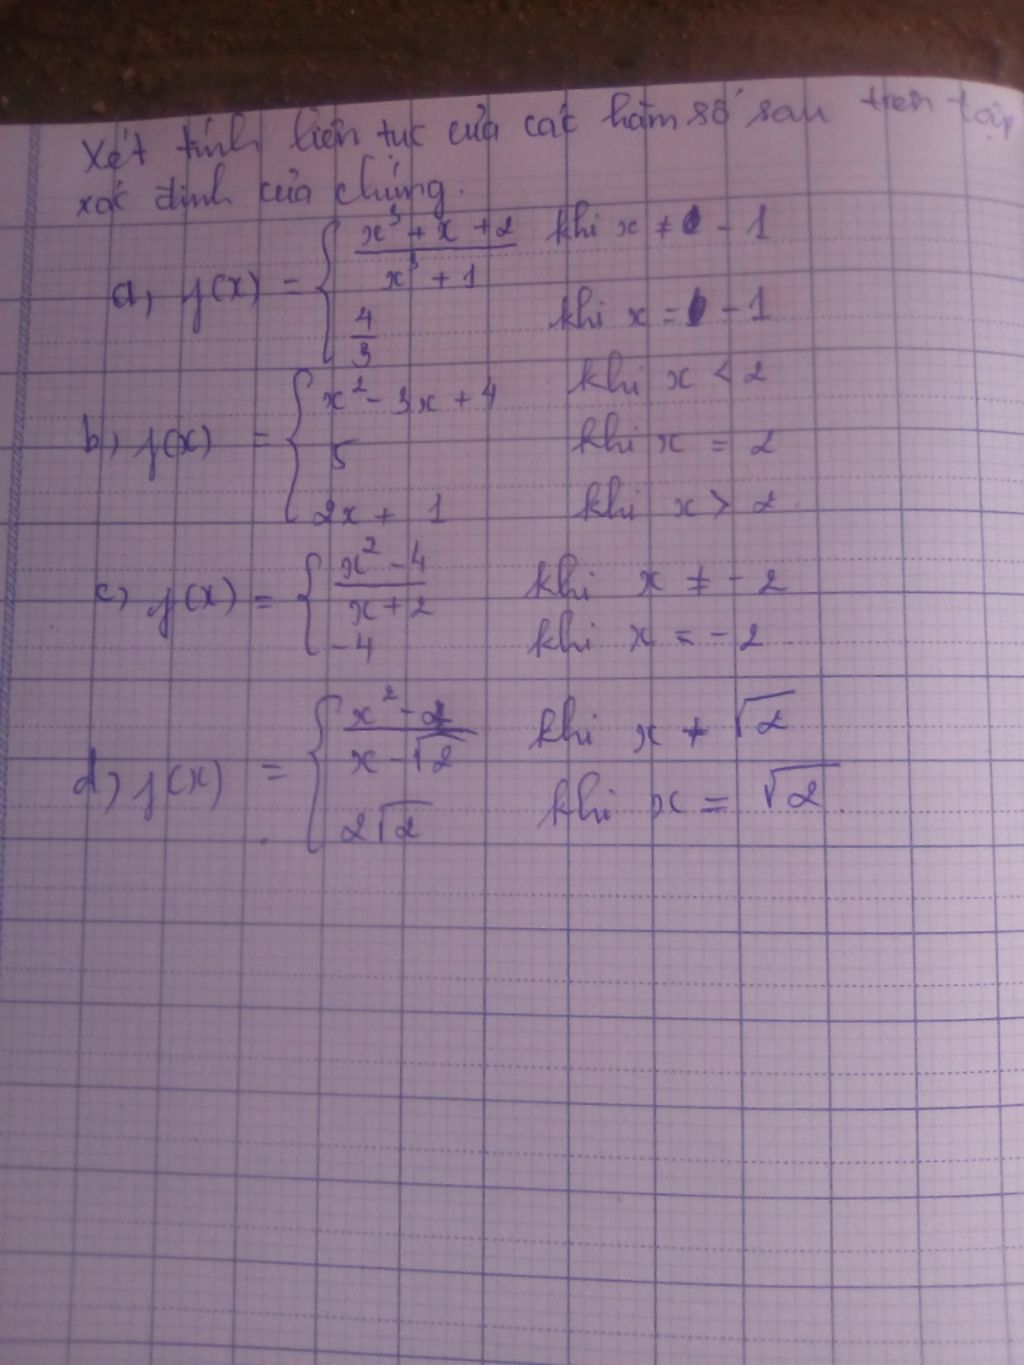 Xét tính liên tục của các hàm số sau trên tập
xác định của chúng.
a, f(x) = { (x³ + x + 2)/(x³ + 1) khi x ≠ -1
4/3 khi x = -1
b, f(x) = { x² - 3x + 4 khi x < 2
5 khi x = 2
2x + 1 khi x > 2
c, f(x) = { (x² - 4)/(x + 2) khi x ≠ -2
-4 khi x = -2
d, f(x) = { (x² - 2)/(x - √2) khi x ≠ √2
2√2 khi x = √2.